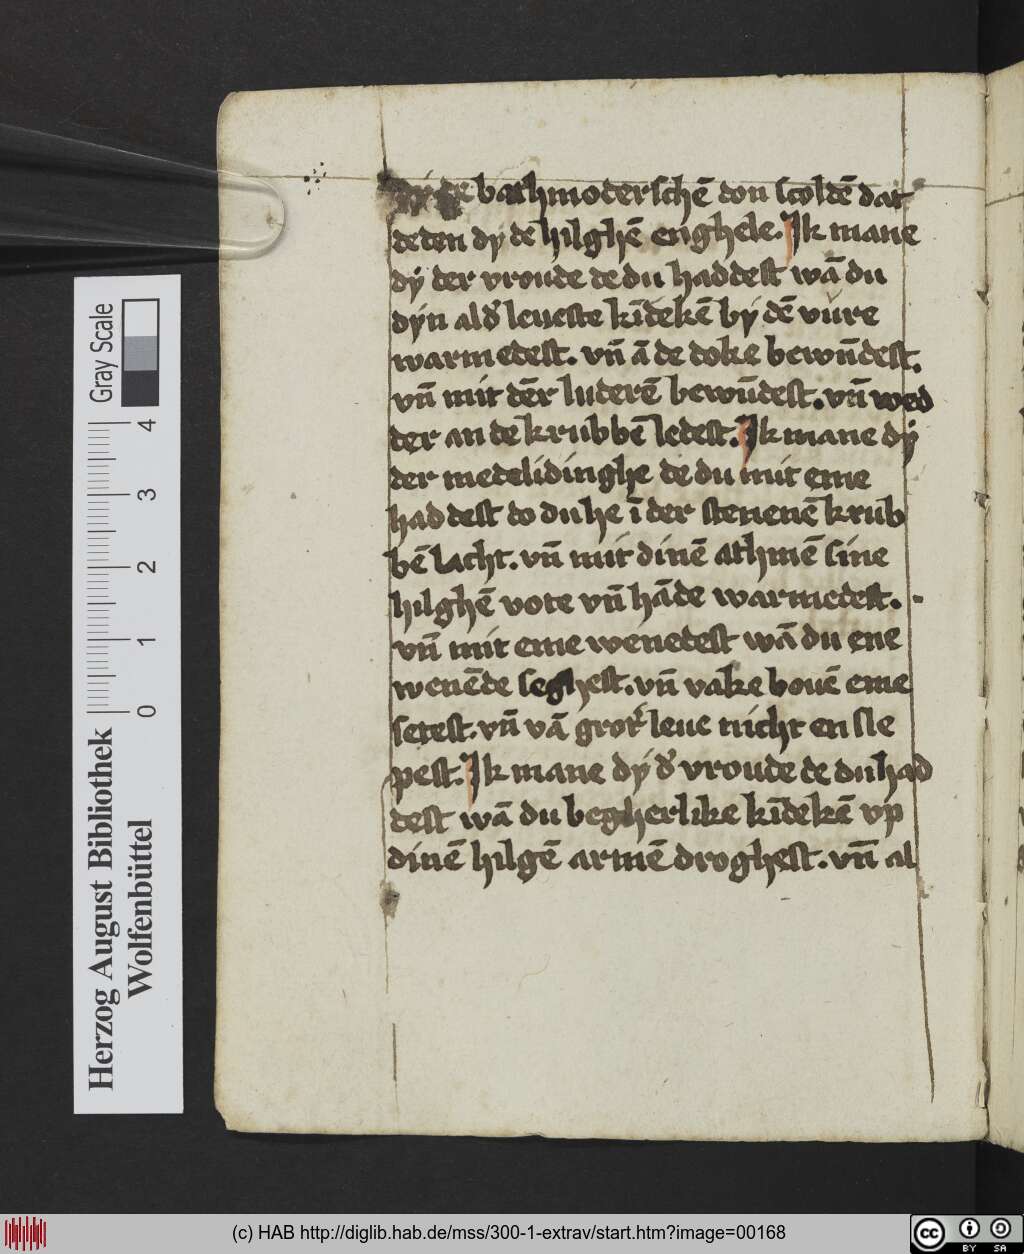 dÿ de bathmoderschē don scoldē dat
deden dy de hilghē enghele. Ik mane
dÿ der vroude de du haddest wā du
dÿn alđ leueste kīdekē bÿ dē vure
warmedest. vn̄ ā de doke bewūdest.
vn̄ mit dēr luderē bewūdest. vn̄ wed
der an de krubbē ledest. Ik mane dÿ
der medelidinghe de du mit eme
haddest do du he ī der stenenē krub
bē lacht. vn̄ mit dinē athmē sine
hilghē vote vn̄ hāde warmedest.
vn̄ mit eme wenedest wā du ene
wenēde seghest. vn̄ vake bouē eme
setest. vn̄ vā grot' leue nicht en sle
pest. Ik mane dÿ đ vroude de du had
dest wā du begherlike kīdekē vp
dinē hilgē armē droghest. vn̄ al
Gray Scale
0 1 2 3 4
Herzog August Bibliothek
Wolfenbüttel
(c) HAB http://diglib.hab.de/mss/300-1-extrav/start.htm?image=00168
cc BY SA